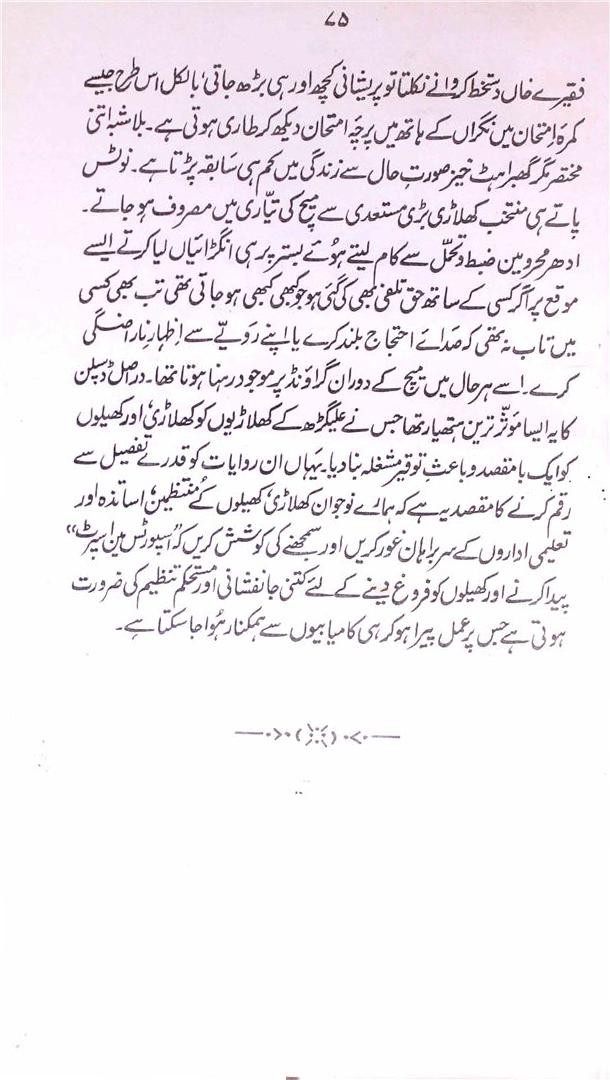 ۷۵
فقیرے خاں دستخط کروانے نکلتا تو پریشانی کچھ اور ہی بڑھ جاتی، بالکل اس طرح جیسے
کمرۂ امتحان میں نگراں کے ہاتھ میں پرچۂ امتحان دیکھ کر طاری ہوتی ہے۔ بلاشبہ اتنی
مختصر مگر گھبراہٹ خیز صورتِ حال سے زندگی میں کم ہی سابقہ پڑتا ہے۔ نوٹس
پاتے ہی منتخب کھلاڑی بڑی مستعدی سے میچ کی تیّاری میں مصروف ہو جاتے۔
ادھر محرومین ضبط و تحمّل سے کام لیتے ہوئے بستر پر ہی انگڑائیاں لیا کرتے ایسے
موقع پر اگر کسی کے ساتھ حق تلفی بھی کی گئی ہو جو کبھی کبھی ہو جاتی تھی تب بھی کسی
میں تاب نہ تھی کہ صدائے احتجاج بلند کرے یا اپنے رویّے سے اظہارِ ناراضگی
کرے۔ اسے ہر حال میں میچ کے دوران گراؤنڈ پر موجود رہنا ہوتا تھا۔ دراصل ڈسپلن
کا یہ ایسا موثّر ترین ہتھیار تھا جس نے علیگڑھ کے کھلاڑیوں کو کھلاڑی، اور کھیلوں
کو ایک بامقصد و باعثِ توقیر مشغلہ بنا دیا۔ یہاں ان روایات کو قدرے تفصیل سے
رقم کرنے کا مقصد یہ ہے کہ ہمارے نوجوان کھلاڑی، کھیلوں کے منتظمین، اساتذہ اور
تعلیمی اداروں کے سربراہان غور کریں اور سمجھنے کی کوشش کریں کہ "اسپورٹس مین اسپرٹ"
پیدا کرنے اور کھیلوں کو فروغ دینے کے لئے کتنی جانفشانی اور مستحکم تنظیم کی ضرورت
ہوتی ہے جس پر عمل پیرا ہو کر ہی کامیابیوں سے ہمکنار ہُوا جا سکتا ہے۔